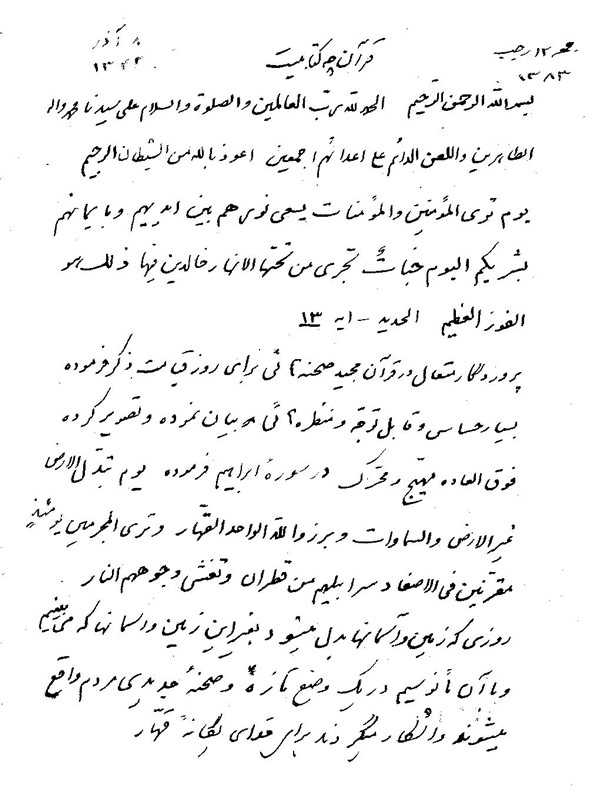 جمعه ۱۲ رجب ۱۳۸۳
قرآن چه کتابیست
۸ آذر ۱۳۴۲
بسم الله الرحمن الرحیم الحمد لله رب العالمین والصلوة والسلام علی سیدنا محمد واله
الطاهرین واللعن الدائم علی اعدائهم اجمعین اعوذ بالله من الشیطان الرجیم
یوم تری المؤمنین والمؤمنات یسعی نورهم بین ایدیهم وبایمانهم
بشریکم الیوم جنات تجری من تحتها الانهار خالدین فیها ذلک هو
الفوز العظیم الحدید - ایه ۱۳
پروردگار متعال در قرآن مجید صحنه‌ئی برای روز قیامت ذکر فرموده
بسیار حساس و قابل توجه و منظره‌ئی بیان نموده و تصویر کرده
فوق العاده مهیج و محرک در سورهٔ ابراهیم فرموده یوم تبدل الارض
غیر الارض والسماوات وبرزوا لله الواحد القهار وتری المجرمین یومئذ
مقرنین فی الاصفاد سرابیلهم من قطران وتغشی وجوههم النار
روزی که زمین و آسمانها بدل میشود بغیر این زمین و آسمانها که می‌بینیم
و با آن مأنوسیم در یک وضع تازه و صحنهٔ جدیدی مردم واقع
میشوند و آشکار میگردند برای خدای یگانهٔ قهار